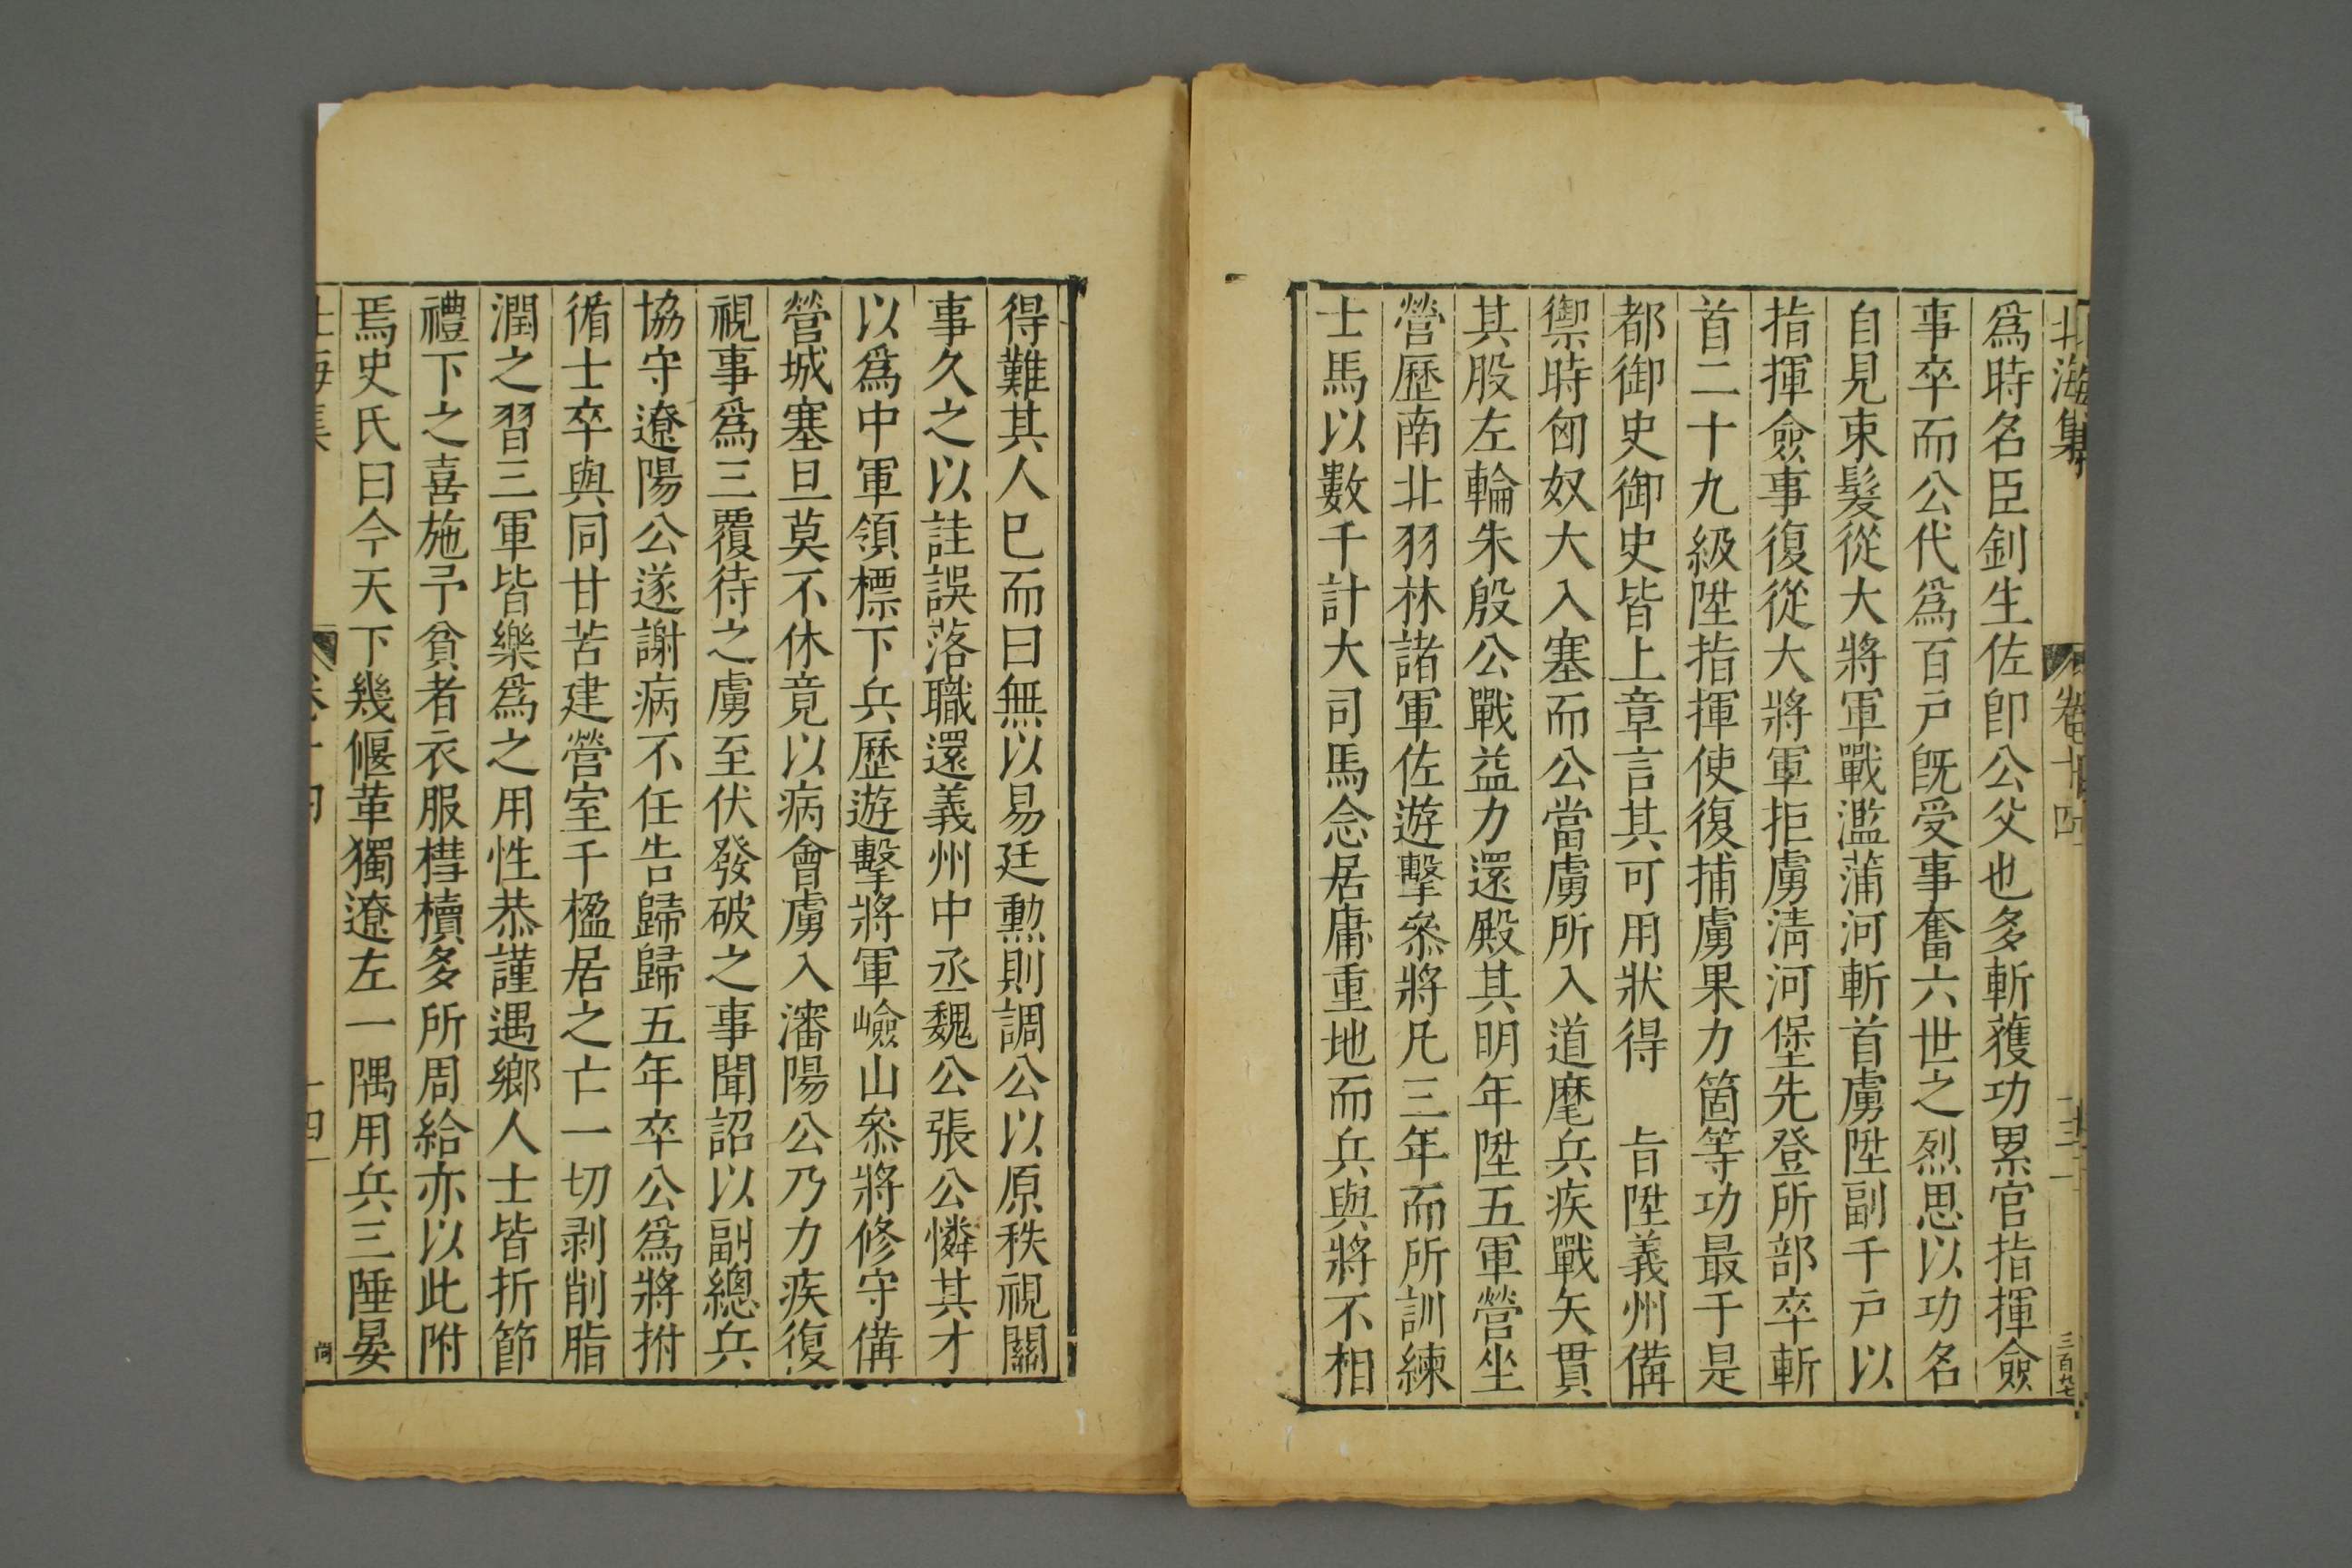 北海集 卷十四 十三 三百九七
爲時名臣釗生佐卽公父也多斬獲功累官指揮僉
事卒而公代爲百戶旣受事奮六世之烈思以功名
自見束髮從大將軍戰濫蒲河斬首虜陞副千戶以
指揮僉事復從大將軍拒虜淸河堡先登所部卒斬
首二十九級陞指揮使復捕虜果力箇等功最于是
都御史御史皆上章言其可用狀得　旨陞義州備
禦時匈奴大入塞而公當虜所入道麾兵疾戰矢貫
其股左輪朱殷公戰益力還殿其明年陞五軍營坐
營歷南北羽林諸軍佐遊擊叅將凡三年而所訓練
士馬以數千計大司馬念居庸重地而兵與將不相
得難其人巳而曰無以易廷勲則調公以原秩視關
事久之以詿誤落職還義州中丞魏公張公憐其才
以爲中軍領標下兵歷遊擊將軍嶮山叅將修守備
營城塞旦莫不休竟以病會虜入瀋陽公乃力疾復
視事爲三覆待之虜至伏發破之事聞詔以副總兵
協守遼陽公遂謝病不任告歸歸五年卒公爲將拊
循士卒與同甘苦建營室千楹居之亡一切剥削脂
潤之習三軍皆樂爲之用性恭謹遇鄉人士皆折節
禮下之喜施予貧者衣服槥櫝多所周給亦以此附
焉史氏曰今天下幾偃革獨遼左一隅用兵三陲晏
北海集 卷十四 十四